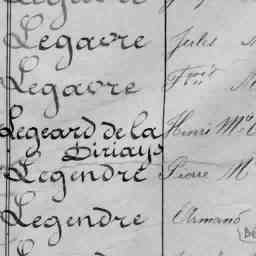 Legavre Jules
Legavre
Legeard de la Henri M.
Diriays
Legendre Pierre M
Legendre Armand